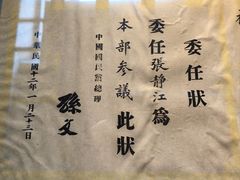 委任狀
委任張靜江爲
本部參議此狀
中國國民黨總理
孫文
中華民國十二年一月二十三日